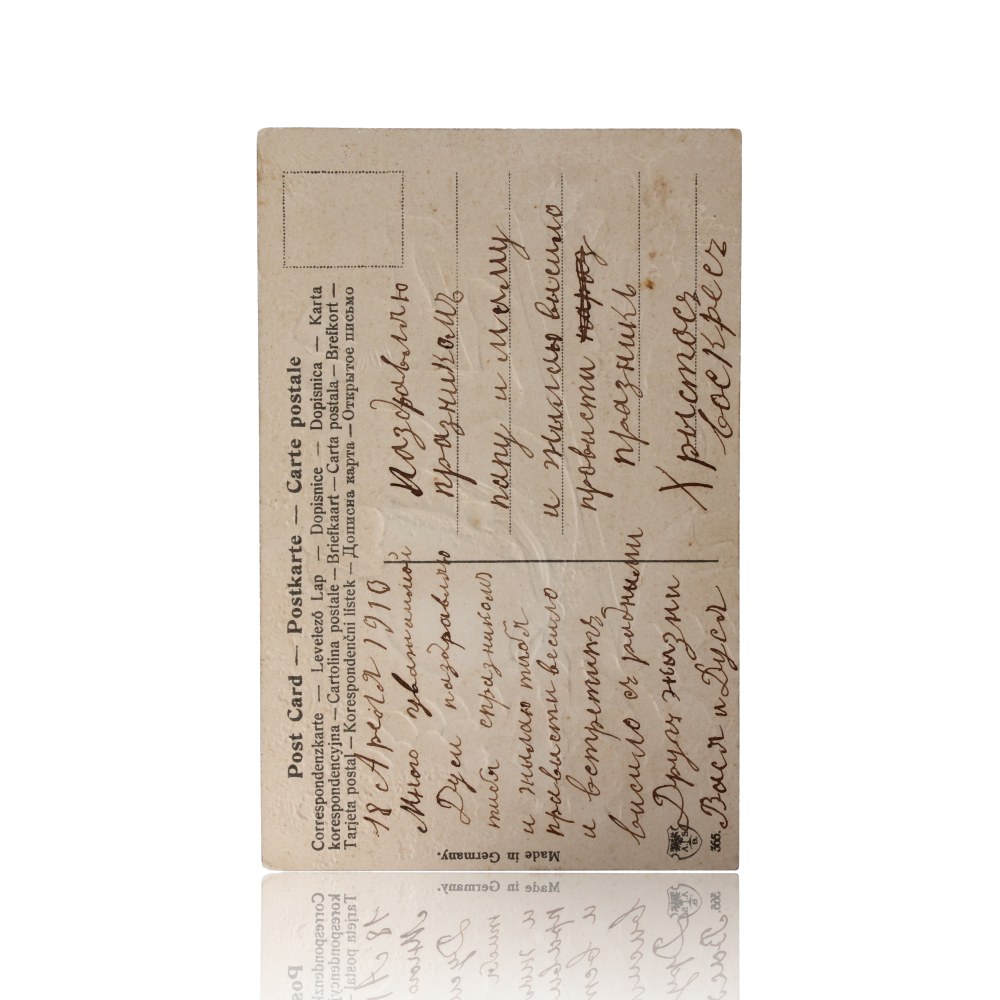 Post Card — Postkarte — Carte postale
Correspondenzkarte — Levelező Lap — Dopisnice — Dopisnica — Karta
korespondencyjna — Cartolina postale — Briefkaart — Carta postala — Brefkort —
Tarjeta postal — Korespondenční lístek — Дописна карта — Открытое письмо
18 Апреля 1910
Много уважиимой
Дуси поздравляю
тибя спразником
и жилаю тибя
прависти весило
и встретить
висило съ родными
Другъ жизни
Вася и Дуся
поздравляю
празникомъ
папу и маму
и жилаю висило
провисти
празникъ
Хрыстосъ
воскресъ
Made in Germany.
365.